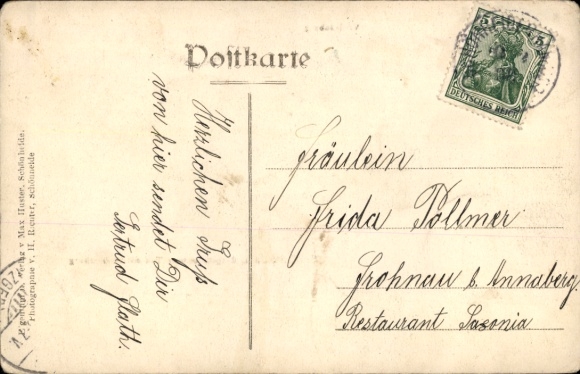 Postkarte
5 5
DEUTSCHES REICH
Herzlichen Gruß
von hier sendet Dir
Gertrud
Fräulein
Frida Pöllmer
Frohnau b. Annaberg.
Restaurant Saxonia
Verlag v Max Huster, Schönheide.
Photographie v. H. Schönheide